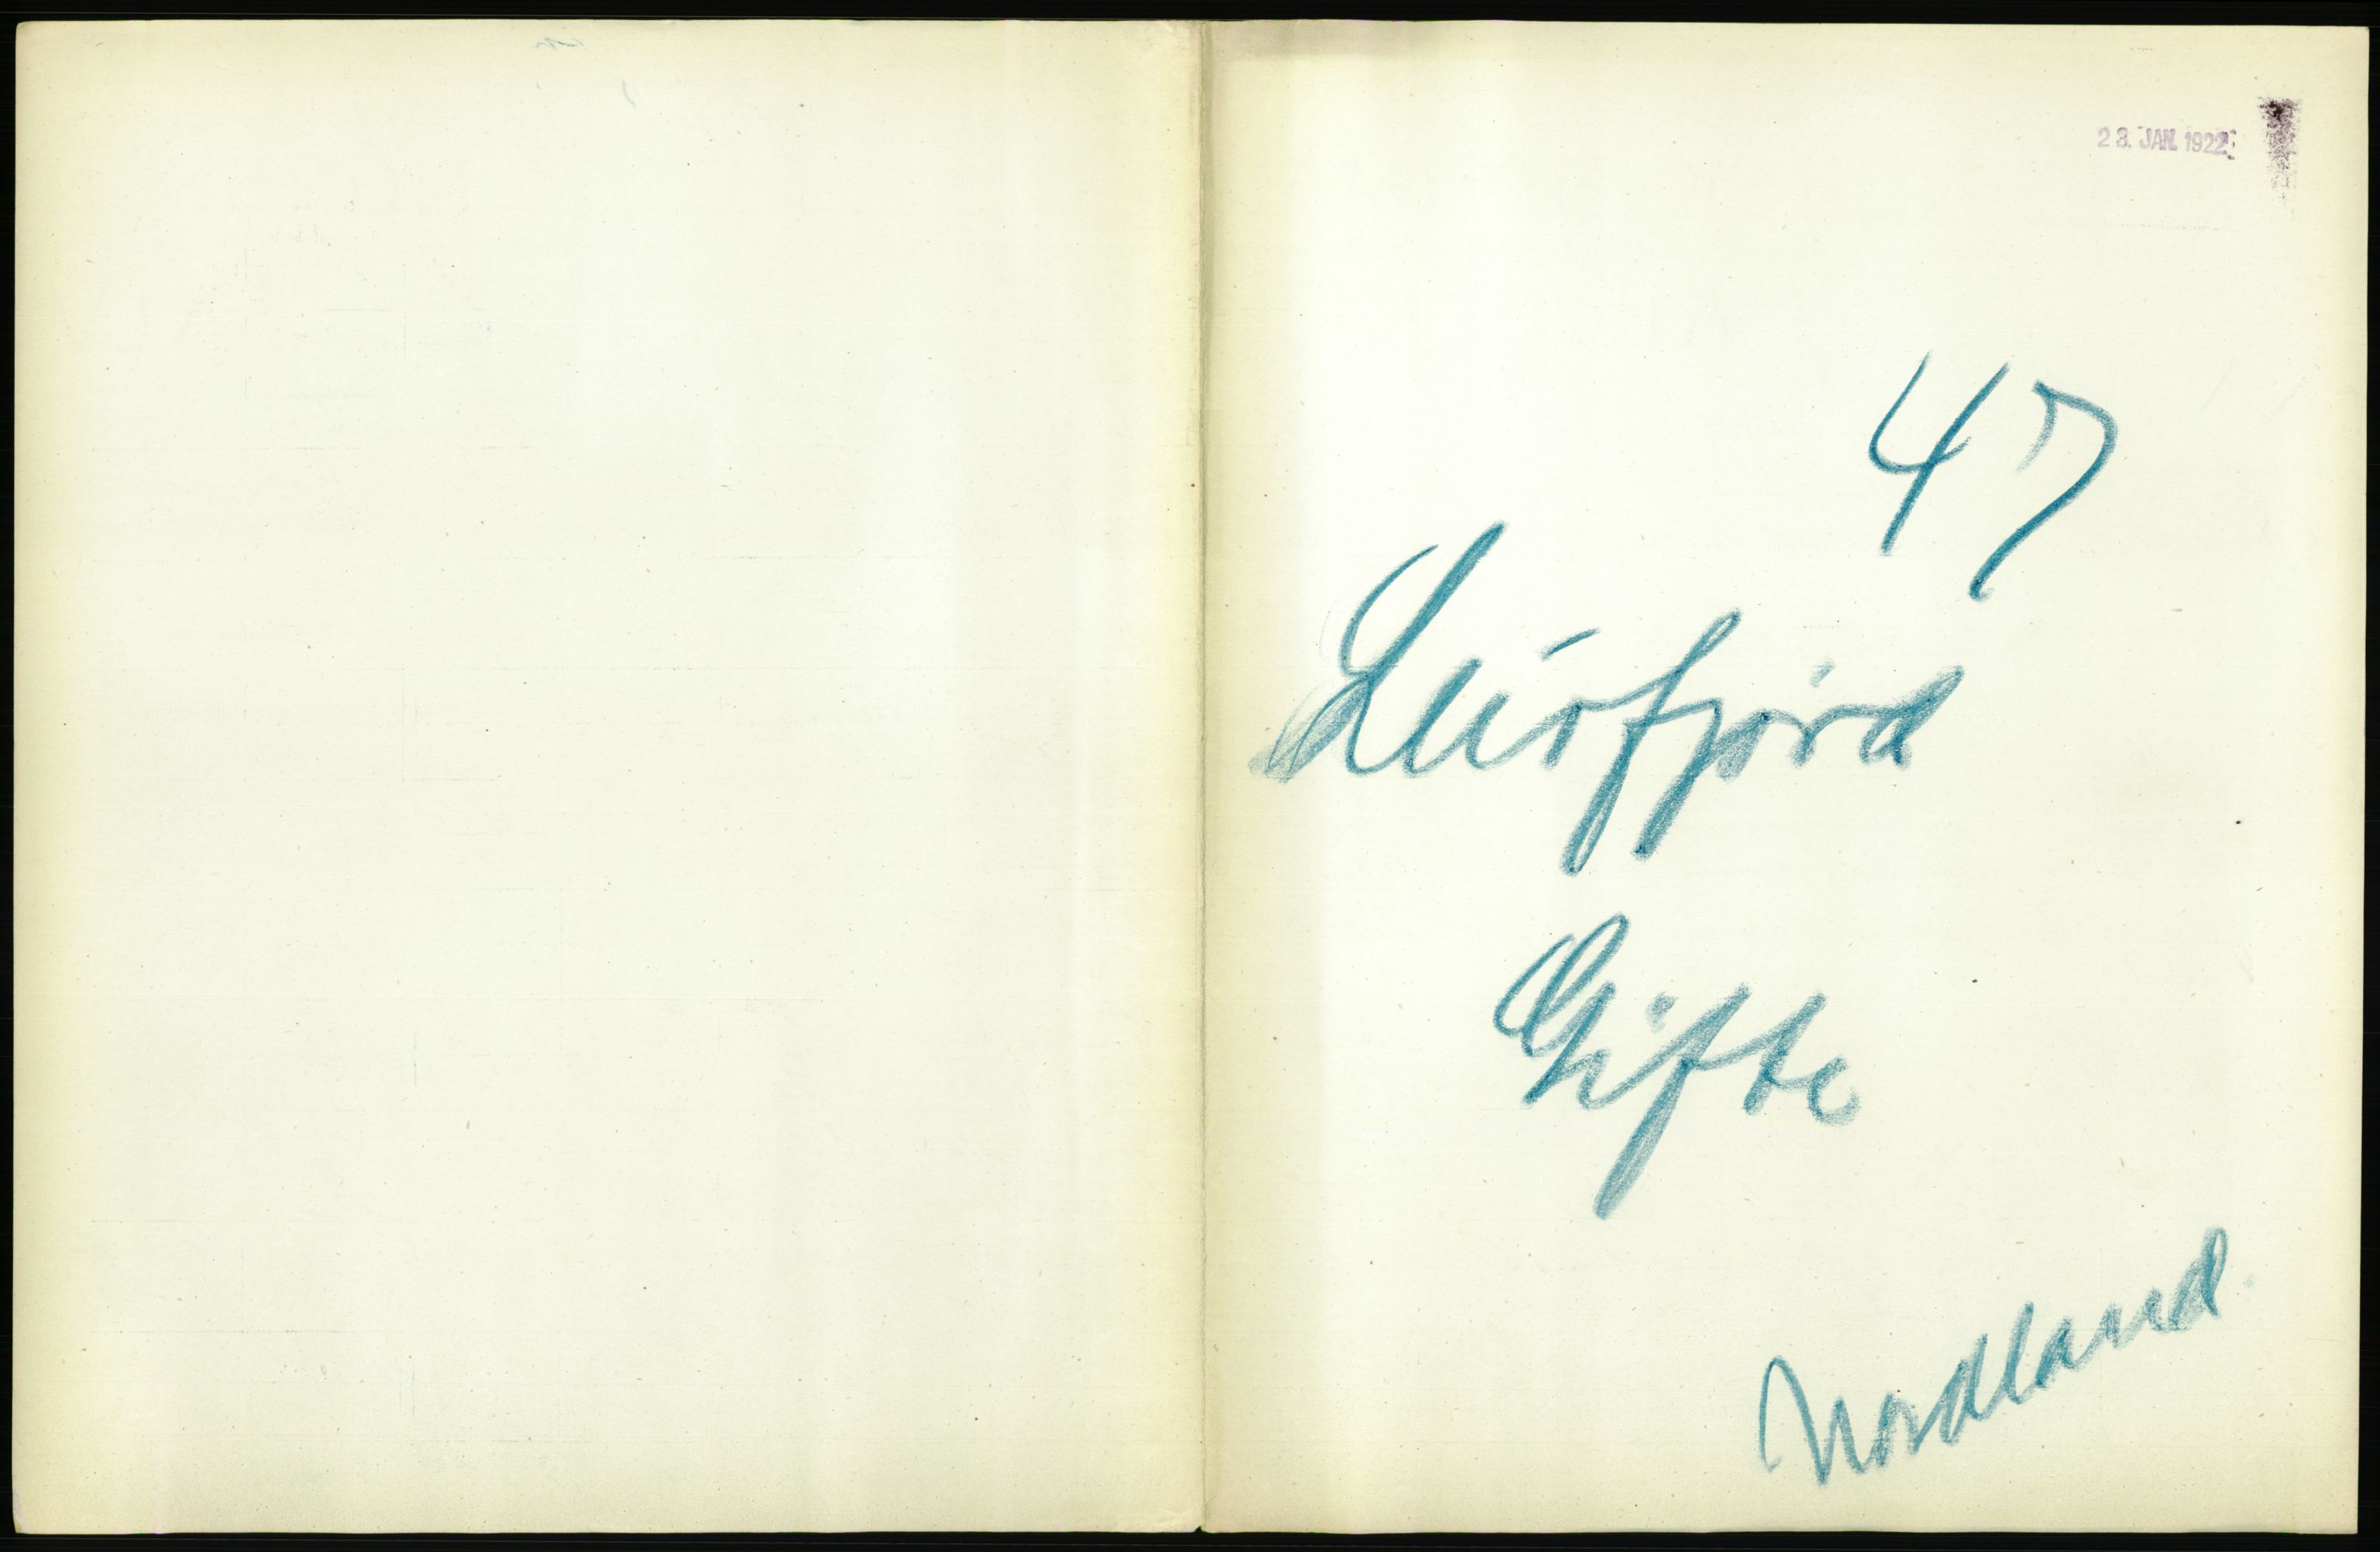 23. JAN. 1922
47
Leirfjord
Gifte
Nordland.